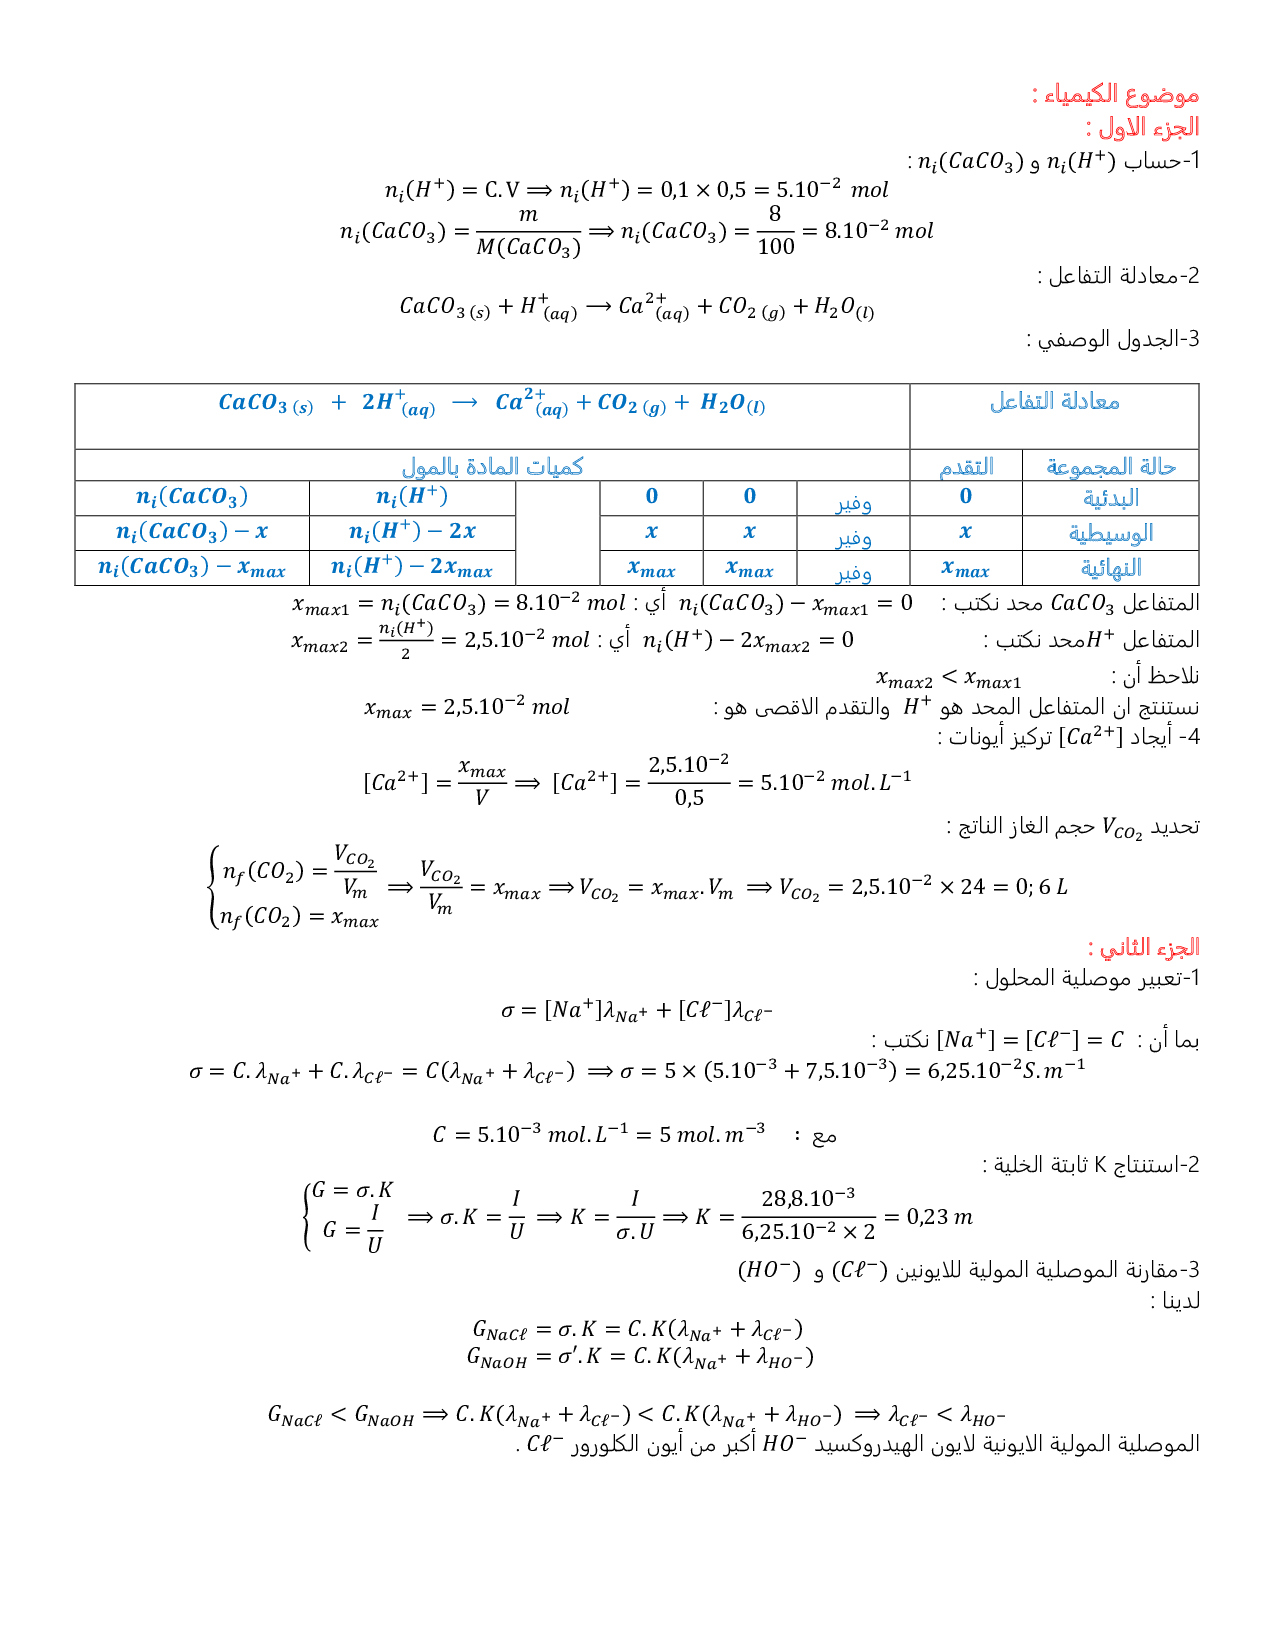 موضوع الكيمياء :
الجزء الاول :
1-حساب nᵢ(H⁺) و nᵢ(CaCO₃) :
nᵢ(H⁺) = C.V ⟹ nᵢ(H⁺) = 0,1 × 0,5 = 5.10⁻² mol
nᵢ(CaCO₃) = m/M(CaCO₃) ⟹ nᵢ(CaCO₃) = 8/100 = 8.10⁻² mol
2-معادلة التفاعل :
CaCO₃ (s) + H⁺(aq) ⟶ Ca²⁺(aq) + CO₂ (g) + H₂O(l)
3-الجدول الوصفي :
معادلة التفاعل CaCO₃ (s) + 2H⁺(aq) ⟶ Ca²⁺(aq) + CO₂ (g) + H₂O(l)
حالة المجموعة التقدم كميات المادة بالمول
البدئية 0 nᵢ(CaCO₃) nᵢ(H⁺) 0 0 وفير
الوسيطية x nᵢ(CaCO₃) − x nᵢ(H⁺) − 2x x x وفير
النهائية xmax nᵢ(CaCO₃) − xmax nᵢ(H⁺) − 2xmax xmax xmax وفير
المتفاعل CaCO₃ محد نكتب : nᵢ(CaCO₃) − xmax1 = 0 أي : xmax1 = nᵢ(CaCO₃) = 8.10⁻² mol
المتفاعل H⁺محد نكتب : nᵢ(H⁺) − 2xmax2 = 0 أي : xmax2 = nᵢ(H⁺)/2 = 2,5.10⁻² mol
نلاحظ أن : xmax2 < xmax1
نستنتج ان المتفاعل المحد هو H⁺ والتقدم الاقصى هو : xmax = 2,5.10⁻² mol
4- أيجاد [Ca²⁺] تركيز أيونات :
[Ca²⁺] = xmax/V ⟹ [Ca²⁺] = 2,5.10⁻²/0,5 = 5.10⁻² mol.L⁻¹
تحديد V_CO₂ حجم الغاز الناتج :
{n_f(CO₂) = V_CO₂/V_m ; n_f(CO₂) = xmax ⟹ V_CO₂/V_m = xmax ⟹ V_CO₂ = xmax.V_m ⟹ V_CO₂ = 2,5.10⁻² × 24 = 0;6 L
الجزء الثاني :
1-تعبير موصلية المحلول :
σ = [Na⁺]λ_Na⁺ + [Cℓ⁻]λ_Cℓ⁻
بما أن : [Na⁺] = [Cℓ⁻] = C نكتب :
σ = C.λ_Na⁺ + C.λ_Cℓ⁻ = C(λ_Na⁺ + λ_Cℓ⁻) ⟹ σ = 5 × (5.10⁻³ + 7,5.10⁻³) = 6,25.10⁻²S.m⁻¹
مع : C = 5.10⁻³ mol.L⁻¹ = 5 mol.m⁻³
2-استنتاج K ثابتة الخلية :
{G = σ.K ; G = I/U ⟹ σ.K = I/U ⟹ K = I/σ.U ⟹ K = 28,8.10⁻³/6,25.10⁻² × 2 = 0,23 m
3-مقارنة الموصلية المولية للايونين (Cℓ⁻) و (HO⁻)
لدينا :
G_NaCℓ = σ.K = C.K(λ_Na⁺ + λ_Cℓ⁻)
G_NaOH = σ′.K = C.K(λ_Na⁺ + λ_HO⁻)
G_NaCℓ < G_NaOH ⟹ C.K(λ_Na⁺ + λ_Cℓ⁻) < C.K(λ_Na⁺ + λ_HO⁻) ⟹ λ_Cℓ⁻ < λ_HO⁻
الموصلية المولية الايونية لايون الهيدروكسيد HO⁻ أكبر من أيون الكلورور Cℓ⁻ .